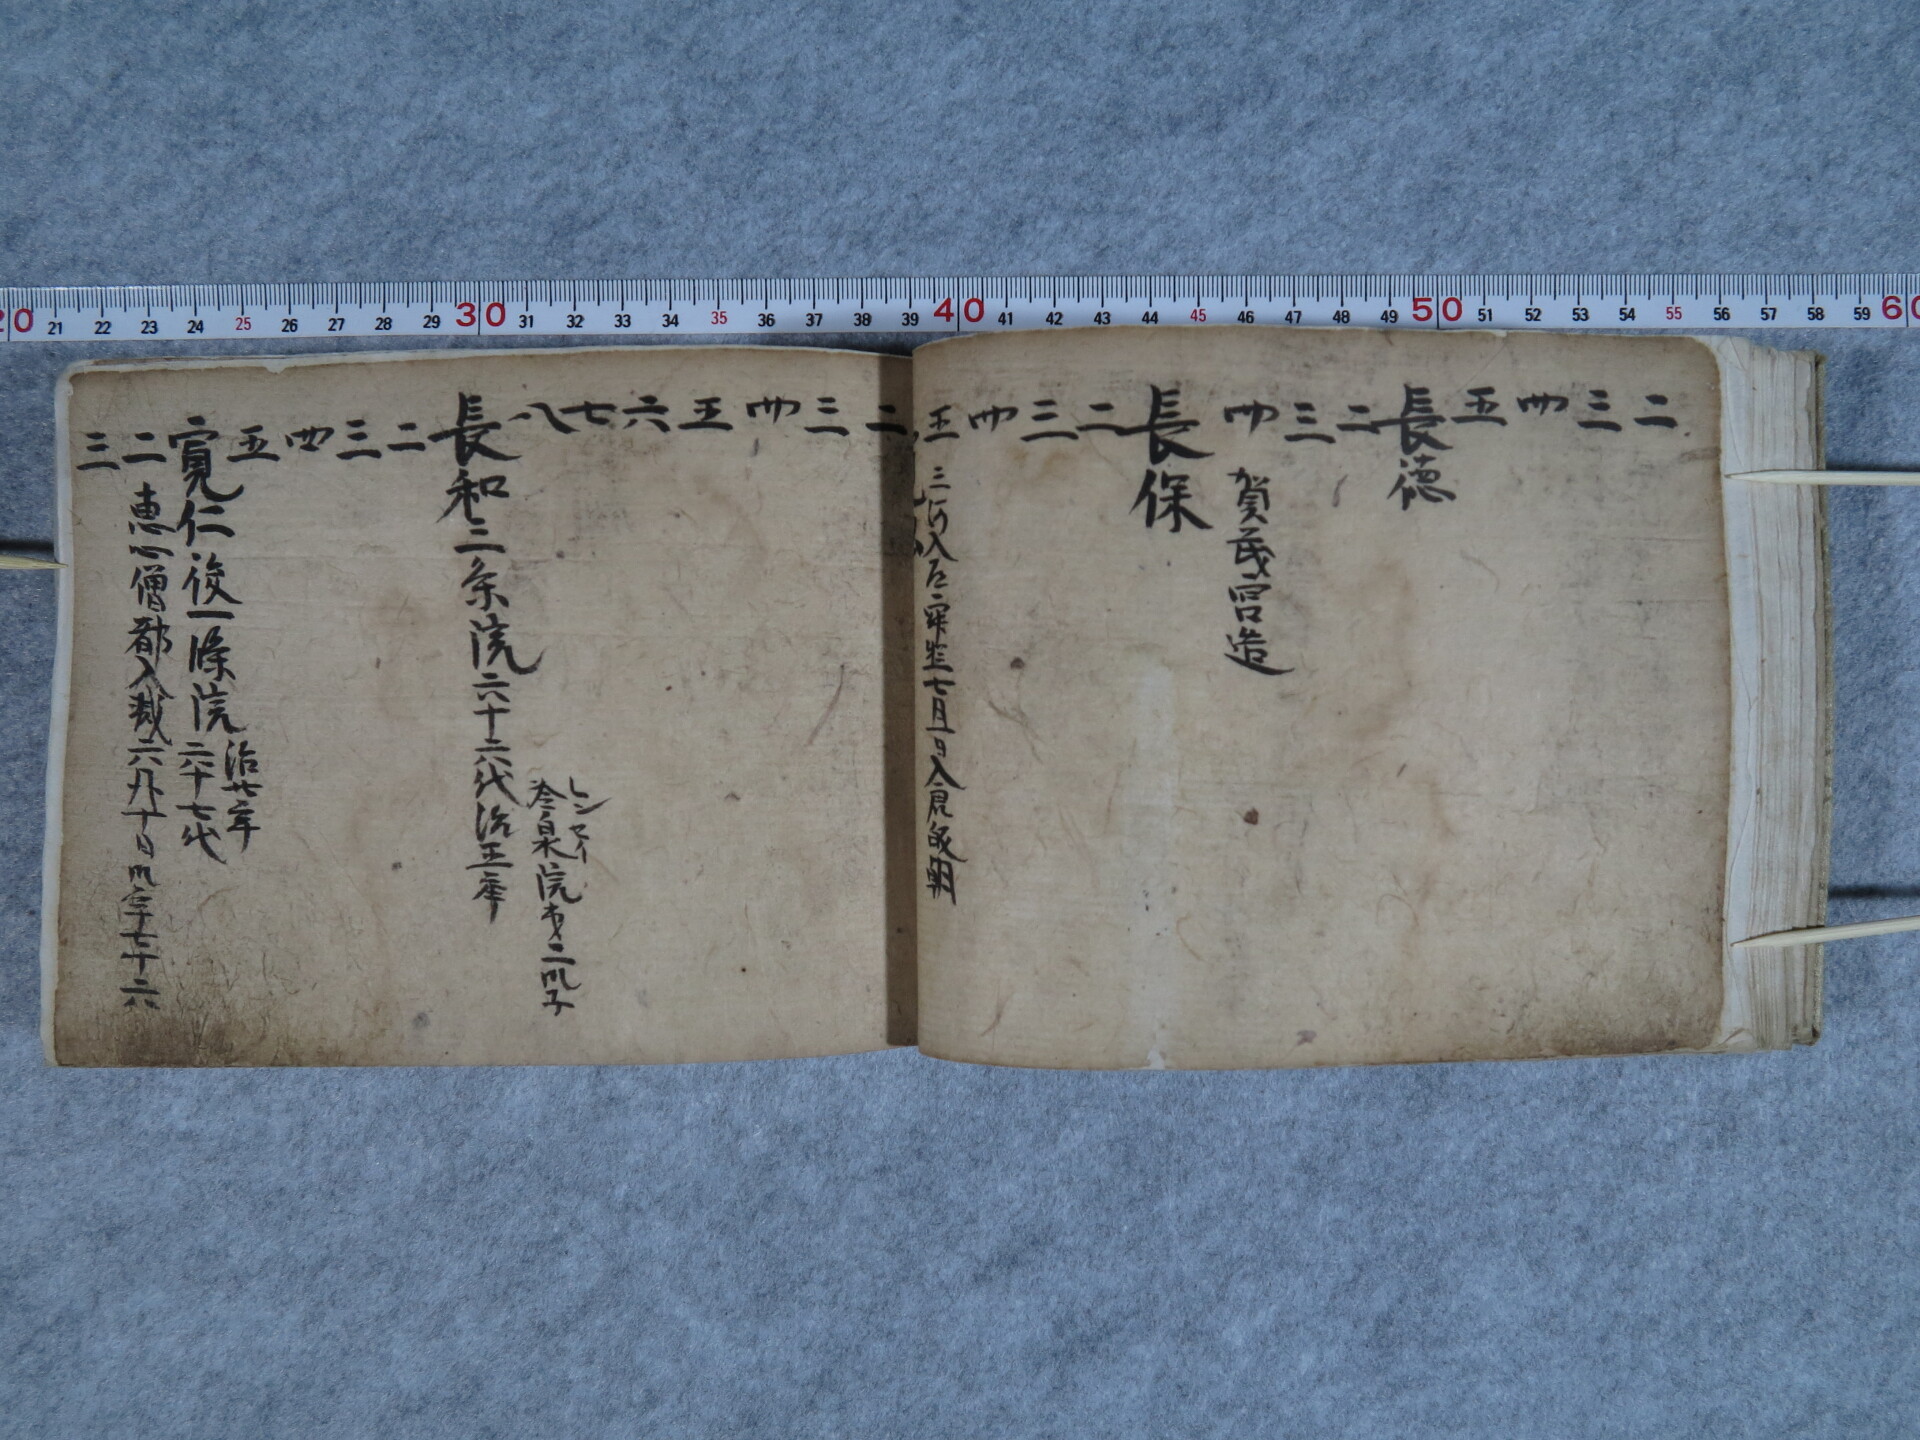 20 21 22 23 24 25 26 27 28 29 30 31 32 33 34 35 36 37 38 39 40 41 42 43 44 45 46 47 48 49 50 51 52 53 54 55 56 57 58 59 60
二
三
四
五
長徳
二
三
四 賀茂宮造
長保
二
三
四
五 三河入
七月五日入
二
三
四
五
六
七
八
レンセイ
冷泉院第二御子
長和 三条院 六十六代治五年
二
三
四
五
治廿年
寛仁 後一條院 六十七代
二 恵心僧都入滅六月十日御年七十六
三